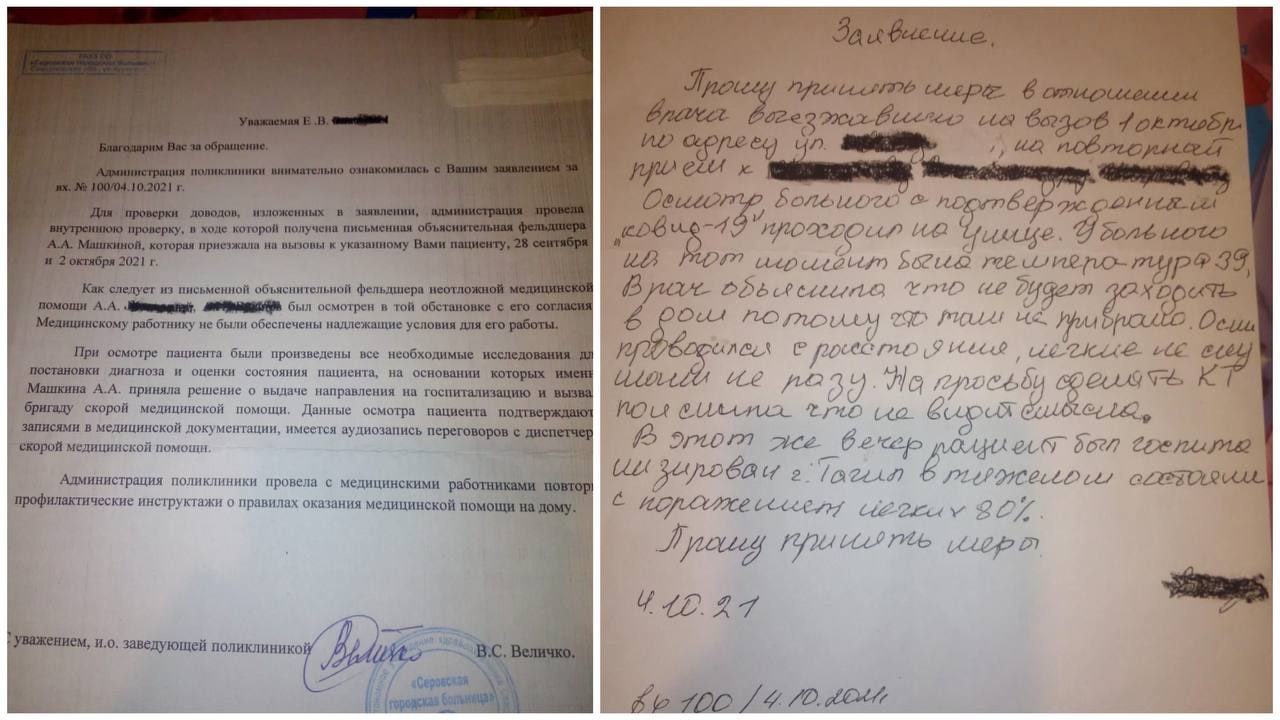 ГАУЗ СО
«Серовская городская больница»
Уважаемая Е .В.
Благодарим Вас за обращение.
Администрация поликлиники внимательно ознакомилась с Вашим заявлением за
вх. № 100/04.10.2021 г.
Для проверки доводов, изложенных в заявлении, администрация провела
внутреннюю проверку, в ходе которой получена письменная объяснительная фельдшера
А.А. Машкиной, которая приезжала на вызовы к указанному Вами пациенту, 28 сентября
и 2 октября 2021 г.
Как следует из письменной объяснительной фельдшера неотложной медицинской
помощи А.А. был осмотрен в той обстановке с его согласия
Медицинскому работнику не были обеспечены надлежащие условия для его работы.
При осмотре пациента были произведены все необходимые исследования дл
постановки диагноза и оценки состояния пациента, на основании которых имен
Машкина А.А. приняла решение о выдаче направления на госпитализацию и вызва
бригаду скорой медицинской помощи. Данные осмотра пациента подтверждают
записями в медицинской документации, имеется аудиозапись переговоров с диспетчер
скорой медицинской помощи.
Администрация поликлиники провела с медицинскими работниками повтор
профилактические инструктажи о правилах оказания медицинской помощи на дому.
С уважением, и.о. заведующей поликлиникой
В.С. Величко.
«Серовская
городская больница»
Заявление.
Прошу принять меры в отношении
врача выезжавшего на вызов 1 октября
по адресу ул. , на повторный
прием к
Осмотр больного с подтвержденным
"ковид-19" проходил на улице. У больного
на тот момент была температура 39,
Врач объяснила что не будет заходить
в дом потому что там не прибрано. Осм
проводился с расстояния, легкие не слу
шали не разу. На просьбу сделать КТ
пояснила что не видит смысла.
В этот же вечер пациент был госпита
лизирован г. Тагил в тяжелом состоянии
с поражением легких 80%.
Прошу принять меры.
4.10.21
вх 100/4.10.2021